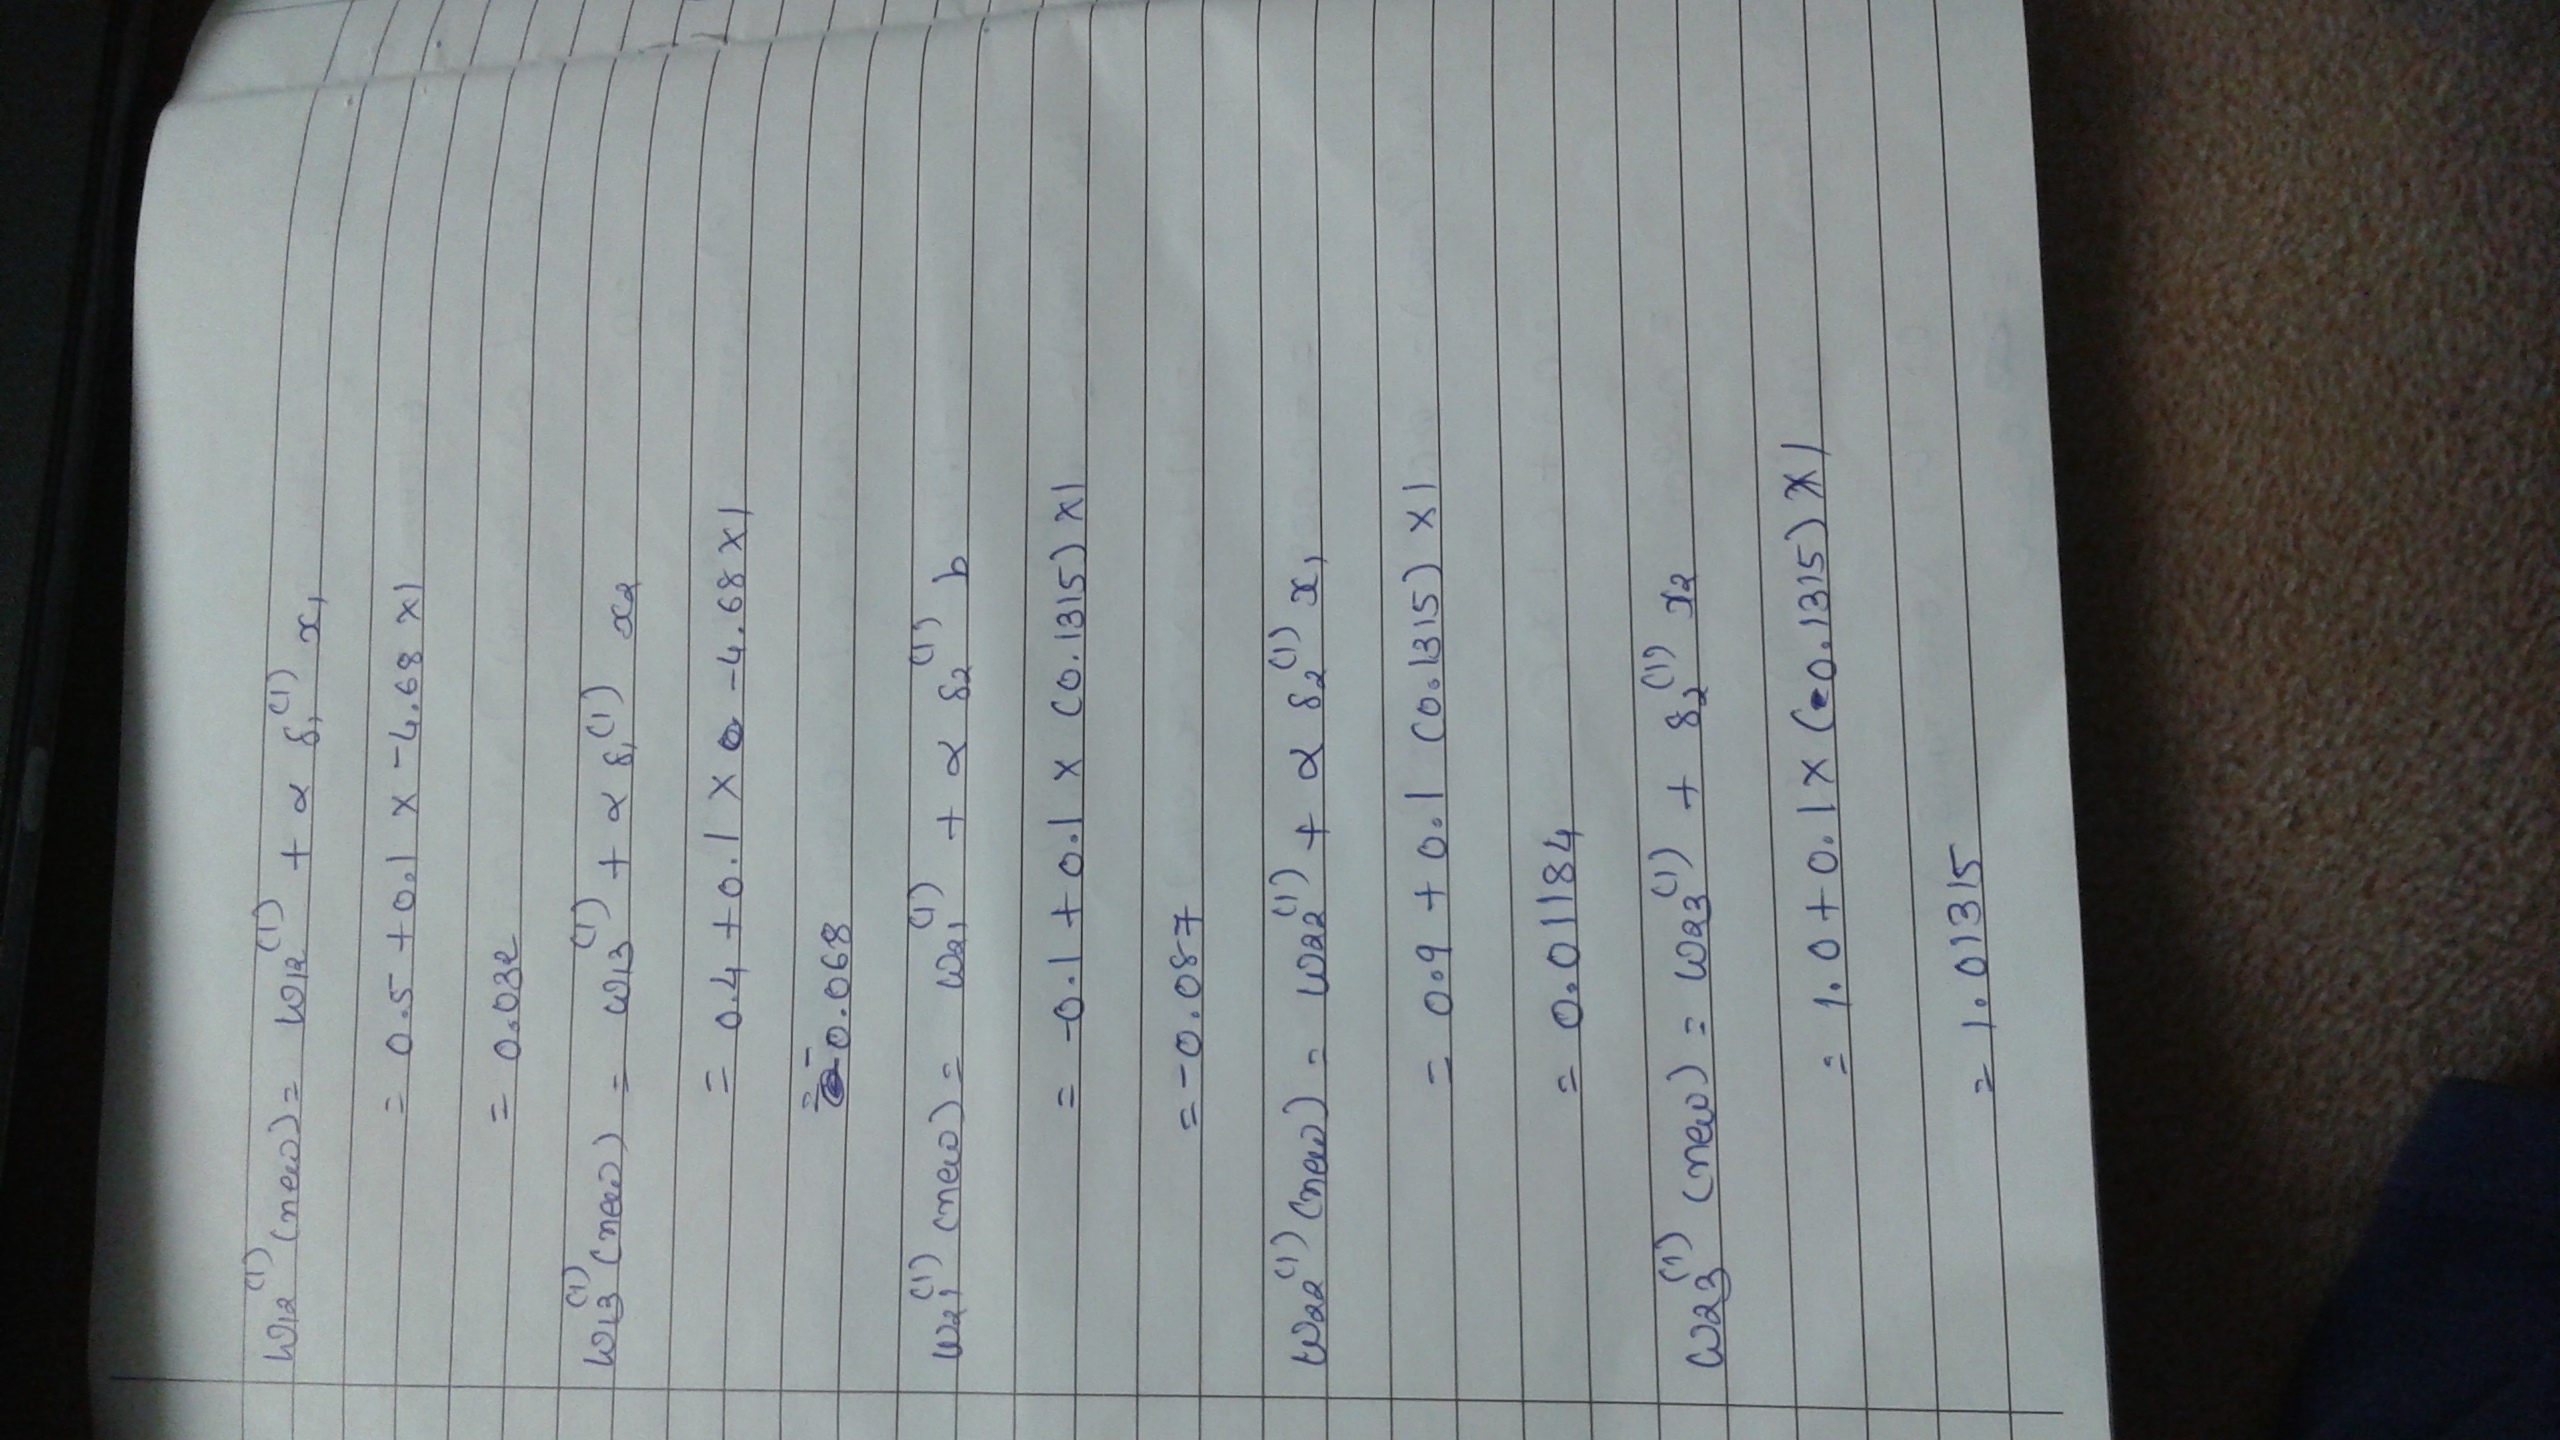 w12^(1) (new) = w12^(1) + α δ1^(1) x1
= 0.5 + 0.1 x -4.68 x1
= 0.032
w13^(1) (new) = w13^(1) + α δ1^(1) x2
= 0.4 + 0.1 x -4.68 x1
= -0.068
w21^(1) (new) = w21^(1) + α δ2^(1) b
= -0.1 + 0.1 x (0.1315) x1
= -0.087
w22^(1) (new) = w22^(1) + α δ2^(1) x1
= 0.9 + 0.1 (0.1315) x1
= 0.01184
w23^(1) (new) = w23^(1) + δ2^(1) x2
= 1.0 + 0.1 x (0.1315) x1
= 1.01315